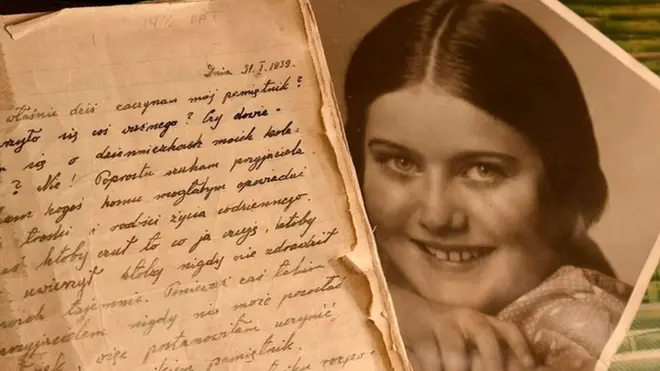 14½ LAT
Dnia 31.I.1939.
właśnie dziś zaczynam mój pamiętnik?
rzyło się coś ważnego? Czy dowie-
się o dzienniczkach moich kole-
? Nie! Poprostu szukam przyjaciela
kogoś komu mogłabym opowiadać
troski i radości życia codziennego.
ktoby czuł to co ja czuję, ktoby
uwierzył, ktoby nigdy nie zdradził
moich tajemnic. Ponieważ takim
przyjacielem nigdy nie może pozostać
więc postanowiłam uczynić
pamiętnik.
rozpo-